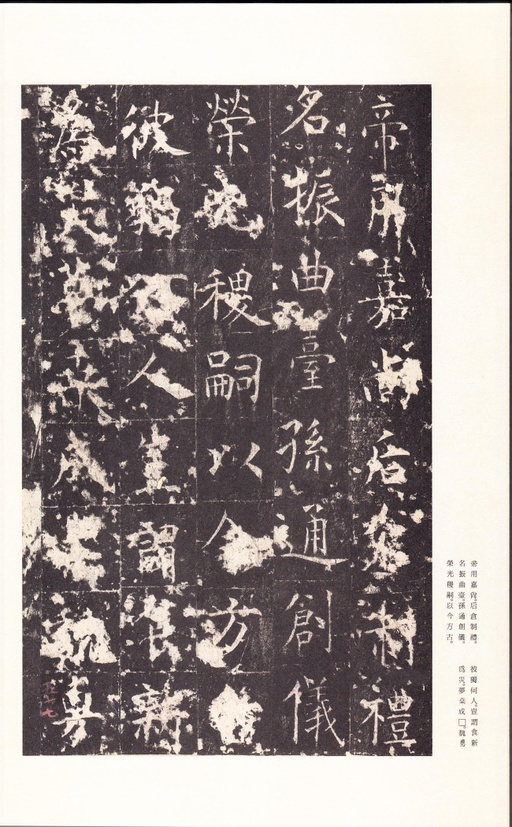 帝用嘉尚后倉制禮
名振曲臺孫通創儀
榮光稷嗣以今方古
彼獨何人豈謂食新
為災夢棗成
帝用嘉尚。后倉制禮。
名振曲臺。孫通創儀。
榮光稷嗣。以今方古。
彼獨何人。豈謂食新
為災。夢棗成□。魏